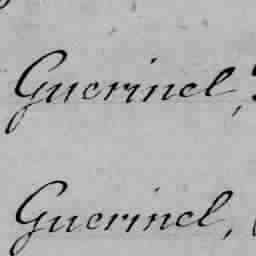 Guerinel,
Guerinel,